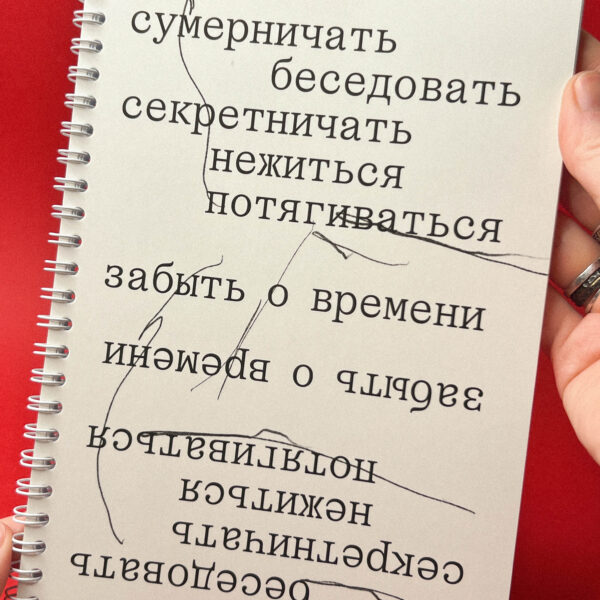 сумерничать
беседовать
секретничать
нежиться
потягиваться
забыть о времени
забыть о времени
потягиваться
нежиться
секретничать
беседовать